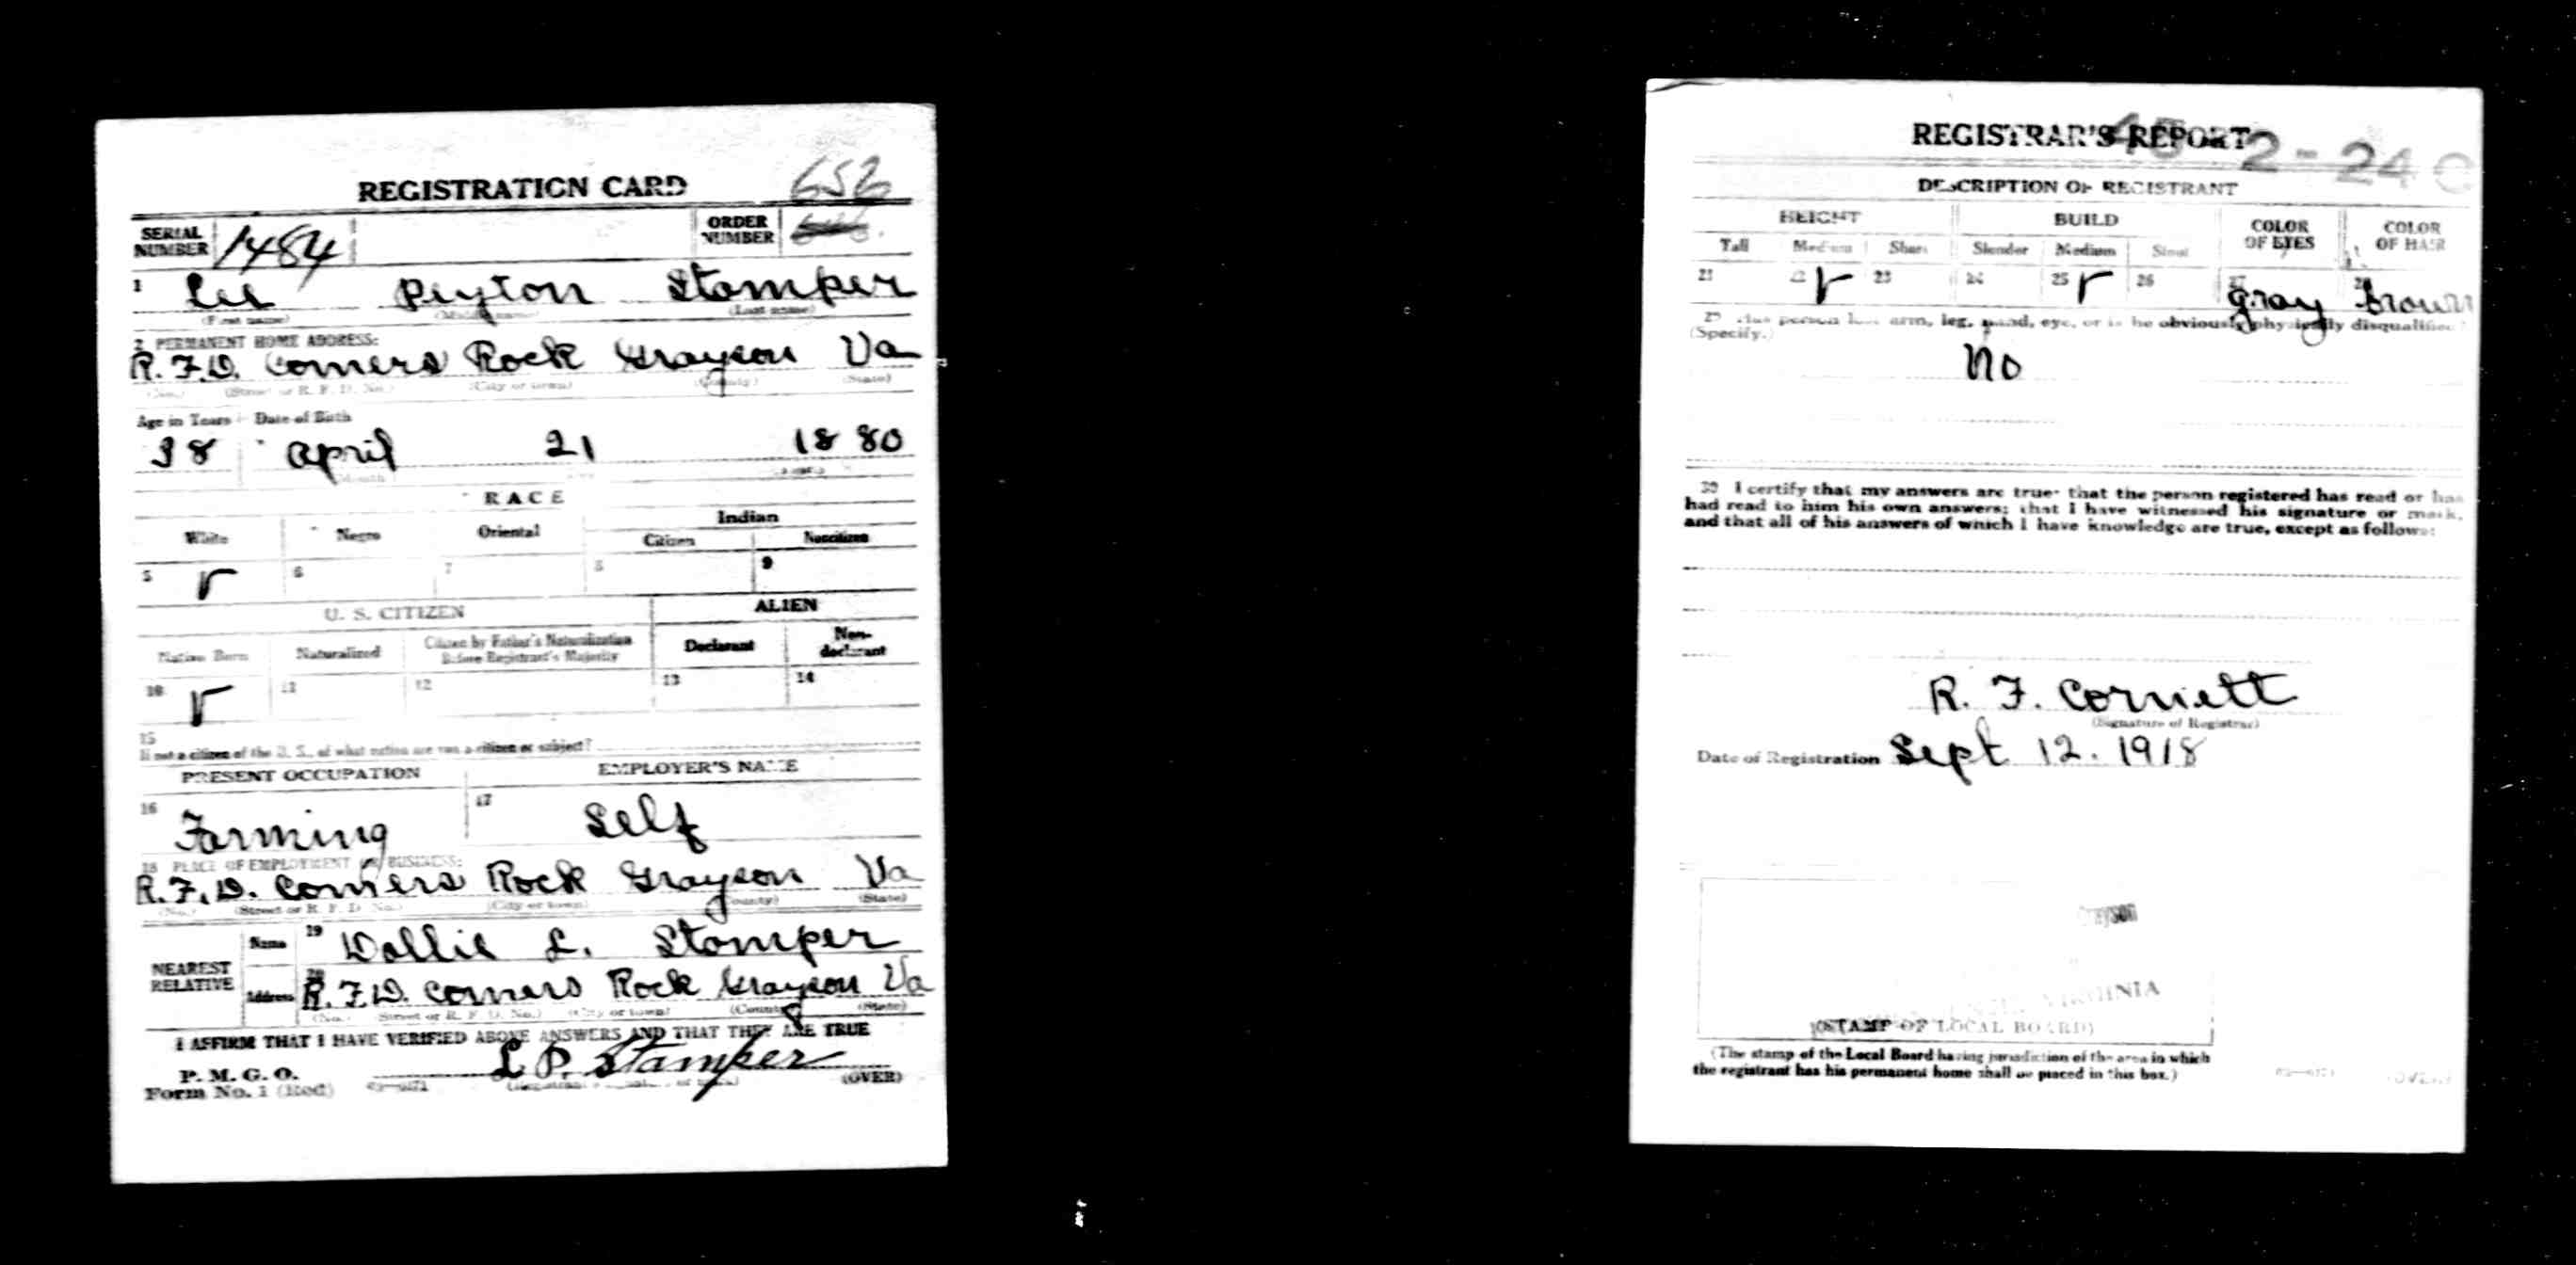 REGISTRATION CARD 652
SERIAL NUMBER 1484 ORDER NUMBER
1 Lee Peyton Stamper
(First name) (Middle name) (Last name)
2 PERMANENT HOME ADDRESS:
R.F.D. Comers Rock Grayson Va
(No.) (Street or R. F. D. No.) (City or town) (County) (State)
Age in Years Date of Birth
38 April 21 1880
(Month)
RACE
White Negro Oriental Indian
Citizen Noncitizen
5 6 7 8 9
U. S. CITIZEN ALIEN
Native Born Naturalized Citizen by Father's Naturalization Before Registrant's Majority Declarant Non-declarant
10 11 12 13 14
15
If not a citizen of the U. S., of what nation are you a citizen or subject?
PRESENT OCCUPATION EMPLOYER'S NAME
16 Farming 17 Self
18 PLACE OF EMPLOYMENT OR BUSINESS:
R.F.D. Comers Rock Grayson Va
(No.) (Street or R. F. D. No.) (City or town) (County) (State)
NEAREST RELATIVE
Name 19 Dollie L. Stamper
Address 20 R.F.D. Comers Rock Grayson Va
(No.) (Street or R. F. D. No.) (City or town) (County) (State)
I AFFIRM THAT I HAVE VERIFIED ABOVE ANSWERS AND THAT THEY ARE TRUE
P. M. G. O.
Form No. 1 (Red) L P. Stamper (OVER)
REGISTRAR'S REPORT
45 2-24 C
DESCRIPTION OF REGISTRANT
HEIGHT BUILD COLOR OF EYES COLOR OF HAIR
Tall Medium Short Slender Medium Stout
21 22 23 24 25 26 27 gray brown
29 Has person lost arm, leg, hand, eye, or is he obviously physically disqualified?
(Specify.)
No
30 I certify that my answers are true; that the person registered has read or has
had read to him his own answers; that I have witnessed his signature or mark,
and that all of his answers of which I have knowledge are true, except as follows:
R. F. Cornett
(Signature of Registrar)
Date of Registration Sept 12. 1918
Grayson
VIRGINIA
(STAMP OF LOCAL BOARD)
(The stamp of the Local Board having jurisdiction of the area in which
the registrant has his permanent home shall be placed in this box.)
(OVER)